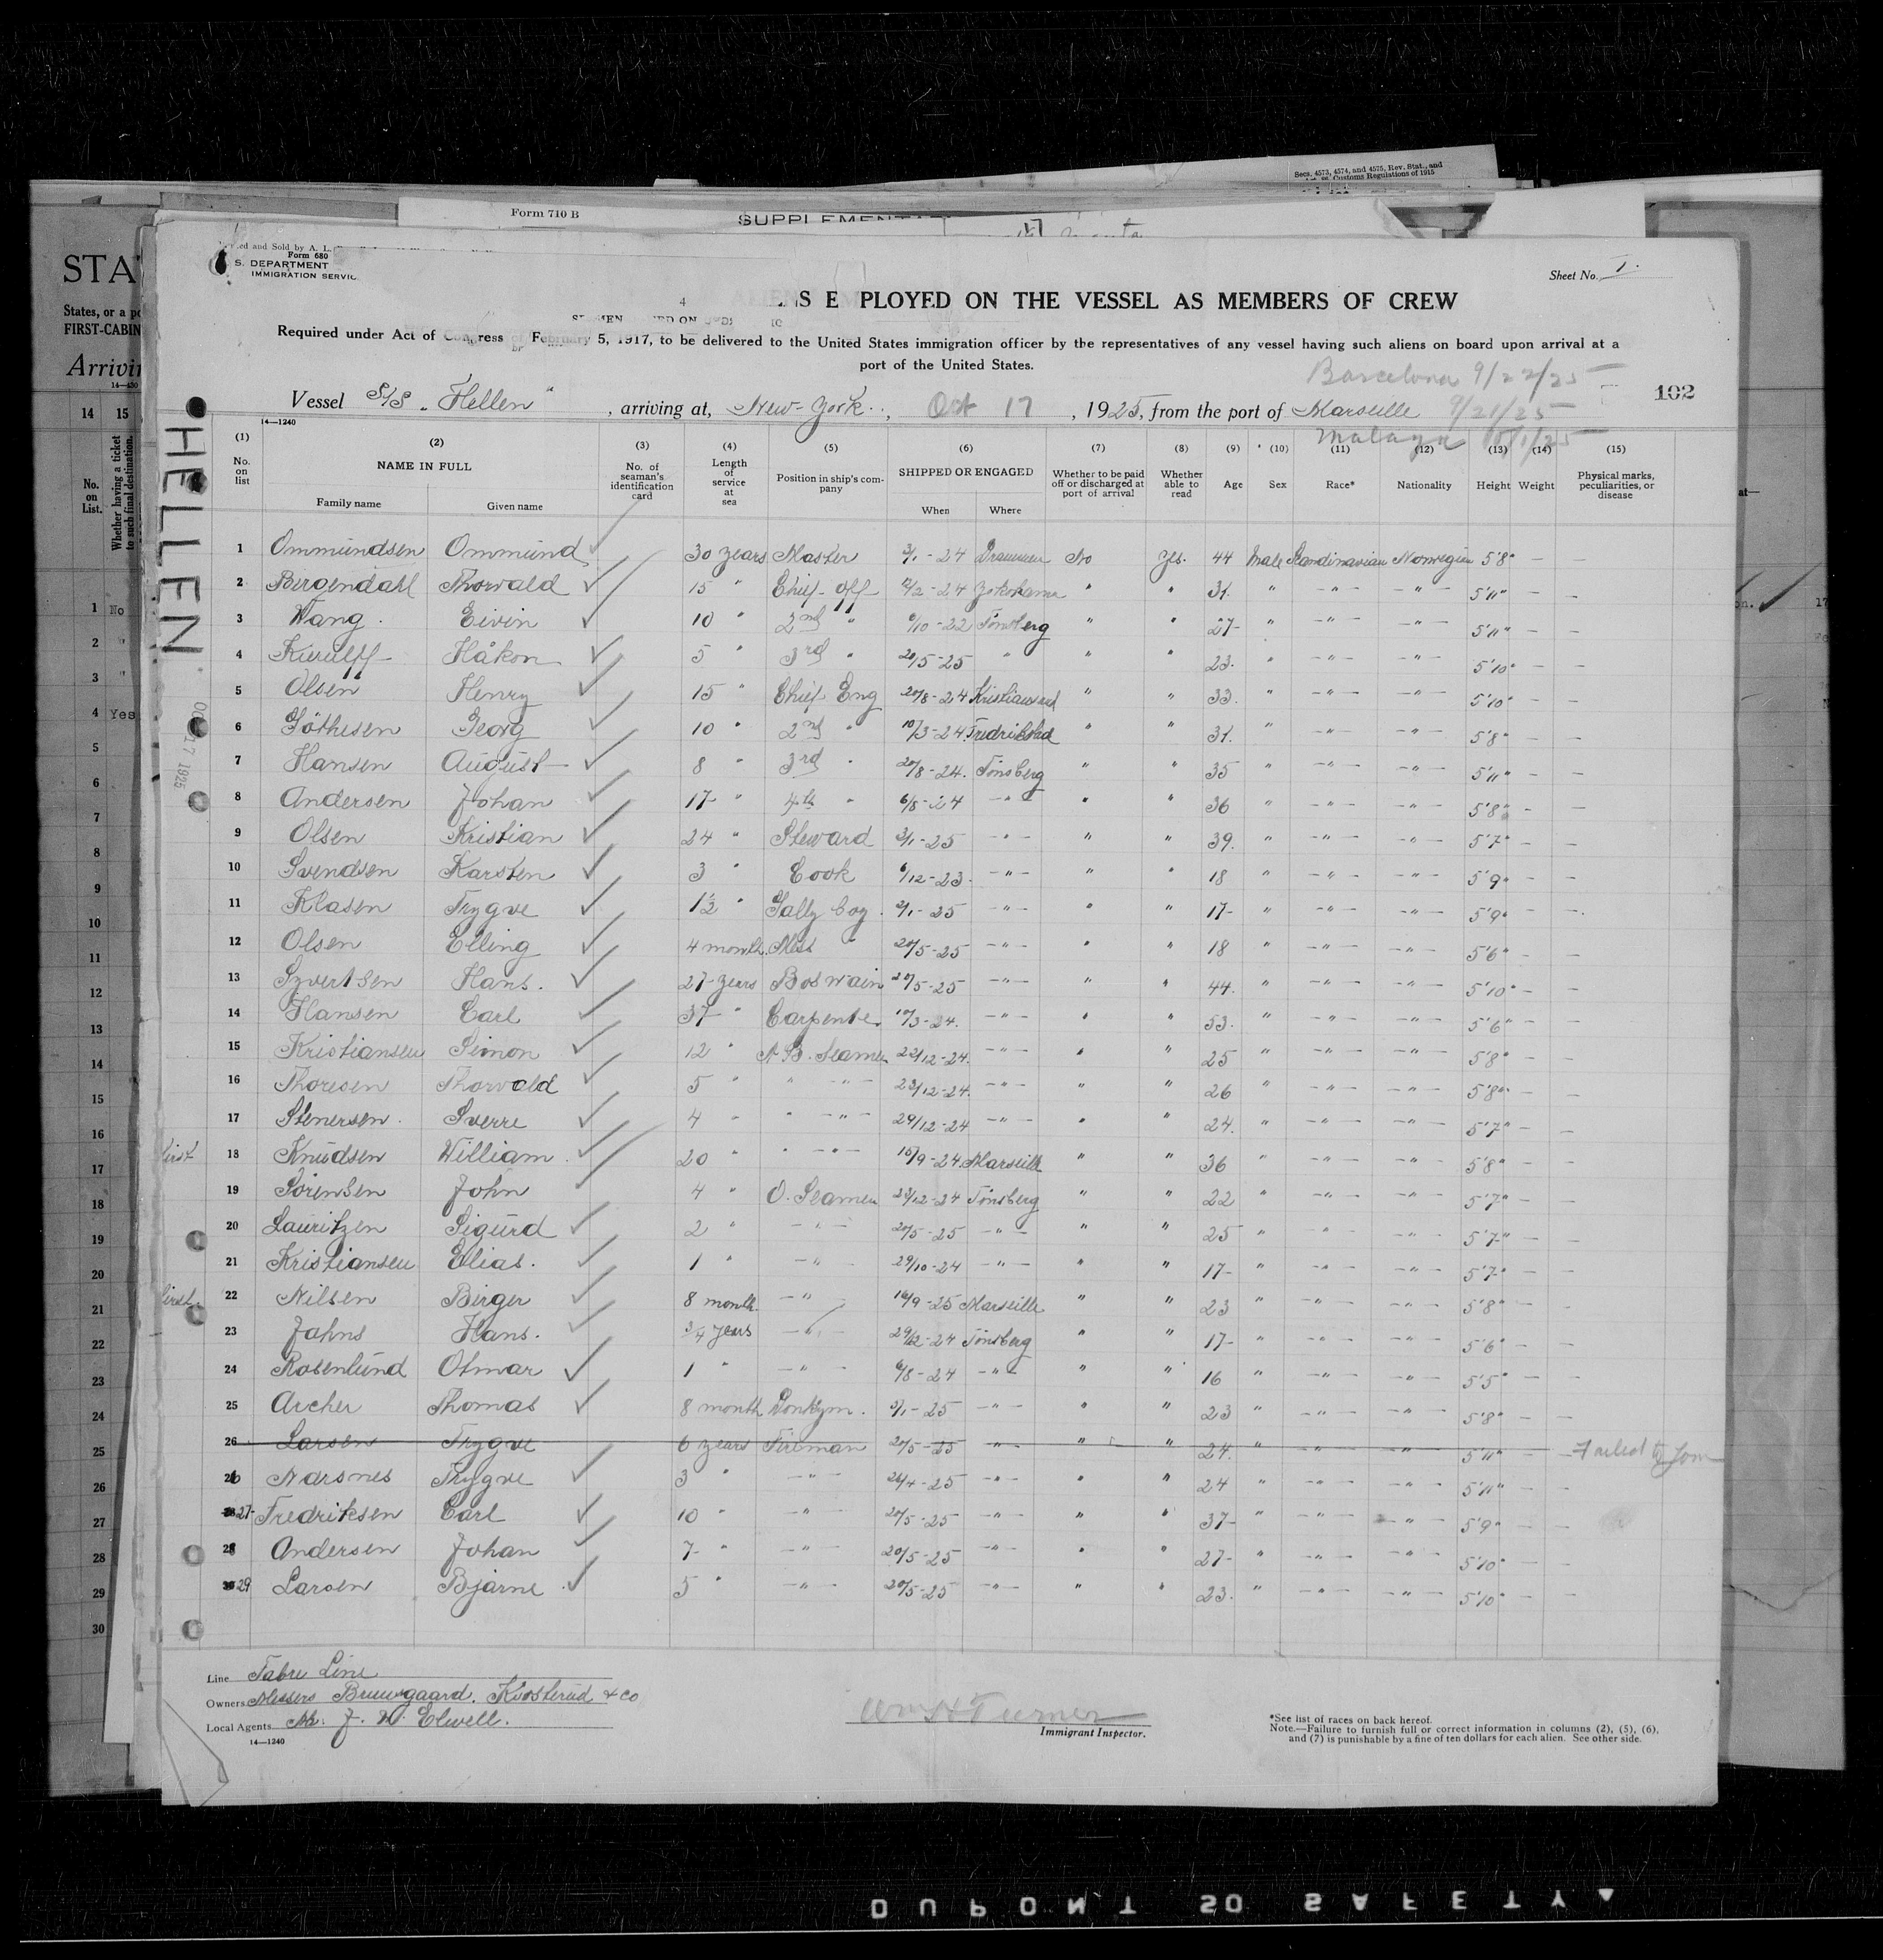 Secs. 4573, 4574, and 4575, Rev. Stat., and
Customs Regulations of 1915
Form 710 B
SUPPLEMENTA
ed and Sold by A. L.
Form 680
S. DEPARTMENT
IMMIGRATION SERVIC
Sheet No. 1.
S E PLOYED ON THE VESSEL AS MEMBERS OF CREW
Required under Act of Congress of February 5, 1917, to be delivered to the United States immigration officer by the representatives of any vessel having such aliens on board upon arrival at a
port of the United States.
Barcelona 9/22/25
102
Vessel S/S. "Hellen", arriving at, New-York., Oct 17, 1925, from the port of Marseille 9/21/25
Malaga 10/1/25
14—1240
(1) (2) (3) (4) (5) (6) (7) (8) (9) (10) (11) (12) (13) (14) (15)
No. on list
NAME IN FULL
Family name
Given name
No. of seaman's identification card
Length of service at sea
Position in ship's company
SHIPPED OR ENGAGED
When
Where
Whether to be paid off or discharged at port of arrival
Whether able to read
Age
Sex
Race*
Nationality
Height
Weight
Physical marks, peculiarities, or disease
1 Ommundsen Ommund 30 years Master 3/1-24 Drammen No Yes. 44 Male Scandinavian Norwegian 5'8" — —
2 Bergendahl Thorvald 15 " Chief off 12/2-24 Yokohama " " 31. " -"- -"- 5'11" — —
3 Wang. Eivin 10 " 2nd " 6/10-22 Tönsberg " " 27- " -"- -"- 5'11" — —
4 Håkon 5 " 3rd " 20/5-25 " " " 23. " -"- -"- 5'10" — —
5 Olsen Henry 15 " Chief Eng 20/8-24 Kristiansand " " 33. " -"- -"- 5'10" — —
6 Göthesen Georg 10 " 2nd " 10/3-24. Fredrikstad " " 31. " -"- -"- 5'8" — —
7 Hansen August 8 " 3rd " 20/8-24. Tönsberg " " 35 " -"- -"- 5'11" — —
8 Andersen Johan 17 " 4th " 6/8-24 -"- " " 36 " -"- -"- 5'8" — —
9 Olsen Kristian 24 " Steward 2/1-25 -"- " " 39. " -"- -"- 5'7" — —
10 Svendsen Karsten 3 " Cook 6/12-23. -"- " " 18 " -"- -"- 5'9" — —
11 Klasen Trygve 1½ " Gally boy. 2/1-25 -"- " " 17- " -"- -"- 5'9" — —
12 Olsen Elling 4 month. Mess " 20/5-25 -"- " " 18 " -"- -"- 5'6" — —
13 Syvertsen Hans. 27 years Boswain 20/5-25 -"- " " 44. " -"- -"- 5'10" — —
14 Hansen Carl 37 " Carpenter 10/3-24. -"- " " 53. " -"- -"- 5'6" — —
15 Kristiansen Simon 12 " A.B. Seamen 22/12-24. -"- " " 25 " -"- -"- 5'8" — —
16 Thoresen Thorvald 5 " " -"- 23/12-24. -"- " " 26 " -"- -"- 5'8" — —
17 Stenersen. Sverre 4 " " -"- 29/12-24 -"- " " 24. " -"- -"- 5'7" — —
first 18 Knudsen William. 20 " " -"- 15/9-24. Marseille " " 36 " -"- -"- 5'8" — —
19 Sörensen John 4 " O. Seamen 23/12-24 Tönsberg " " 22 " -"- -"- 5'7" — —
20 Lauritzen Sigurd 2 " -"- 20/5-25 -"- " " 25 " -"- -"- 5'7" — —
21 Kristiansen Elias. 1 " -"- 29/10-24 -"- " " 17- " -"- -"- 5'7" — —
first. 22 Nilsen Birger 8 month. -"- 16/9-25 Marseille " " 23 " -"- -"- 5'8" — —
23 Jahns Hans. 3/4 years -"- 29/12-24 Tönsberg " " 17- " -"- -"- 5'6" — —
24 Rosenlund Otmar 1 " -"- 6/8-24 -"- " " 16 " -"- -"- 5'5" — —
25 Archer Thomas 8 month Donkym. 2/1-25 -"- " " 23 " -"- -"- 5'8" — —
26 Larsen Trygve 6 years Fireman 20/5-25 -"- " " 24. " -"- -"- 5'11" — — Failed to Join
26 Narsnes Trygve 3 " -"- 26/4-25 -"- " " 24 " -"- -"- 5'11" — —
27 Fredriksen Carl 10 " -"- 20/5-25 -"- " " 37- " -"- -"- 5'9" — —
28 Andersen Johan 7 " -"- 20/5-25 -"- " " 27- " -"- -"- 5'10" — —
29 Larsen Bjarne 5 " -"- 20/5-25 -"- " " 23. " -"- -"- 5'10" — —
Line Fabre Line
Owners Messers Bruusgaard, Kiosterud & co
Local Agents Mr. J. W. Elwell.
14—1240
Wm H Turner
Immigrant Inspector.
*See list of races on back hereof.
Note.—Failure to furnish full or correct information in columns (2), (5), (6),
and (7) is punishable by a fine of ten dollars for each alien. See other side.
HELLEN
17 1925
STA
States, or a po
FIRST-CABIN
Arrivin
14 15
No. on List.
Whether having a ticket to such final destination.
1 No
2 "
3 "
4 Yes
5
6
7
8
9
10
11
12
13
14
15
16
17
18
19
20
21
22
23
24
25
26
27
28
29
30
DUPONT SO SAFETY